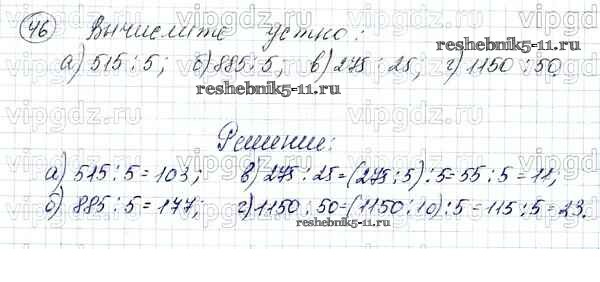 46 Вычислите устно:
а) 515 : 5; б) 885 : 5; в) 275 : 25; г) 1150 : 50.
Решение:
а) 515 : 5 = 103; в) 275 : 25 = (275 : 5) : 5 = 55 : 5 = 11;
б) 885 : 5 = 177; г) 1150 : 50 = (1150 : 10) : 5 = 115 : 5 = 23.
vipgdz.ru
reshebnik5-11.ru
reshebnik5-11.ru